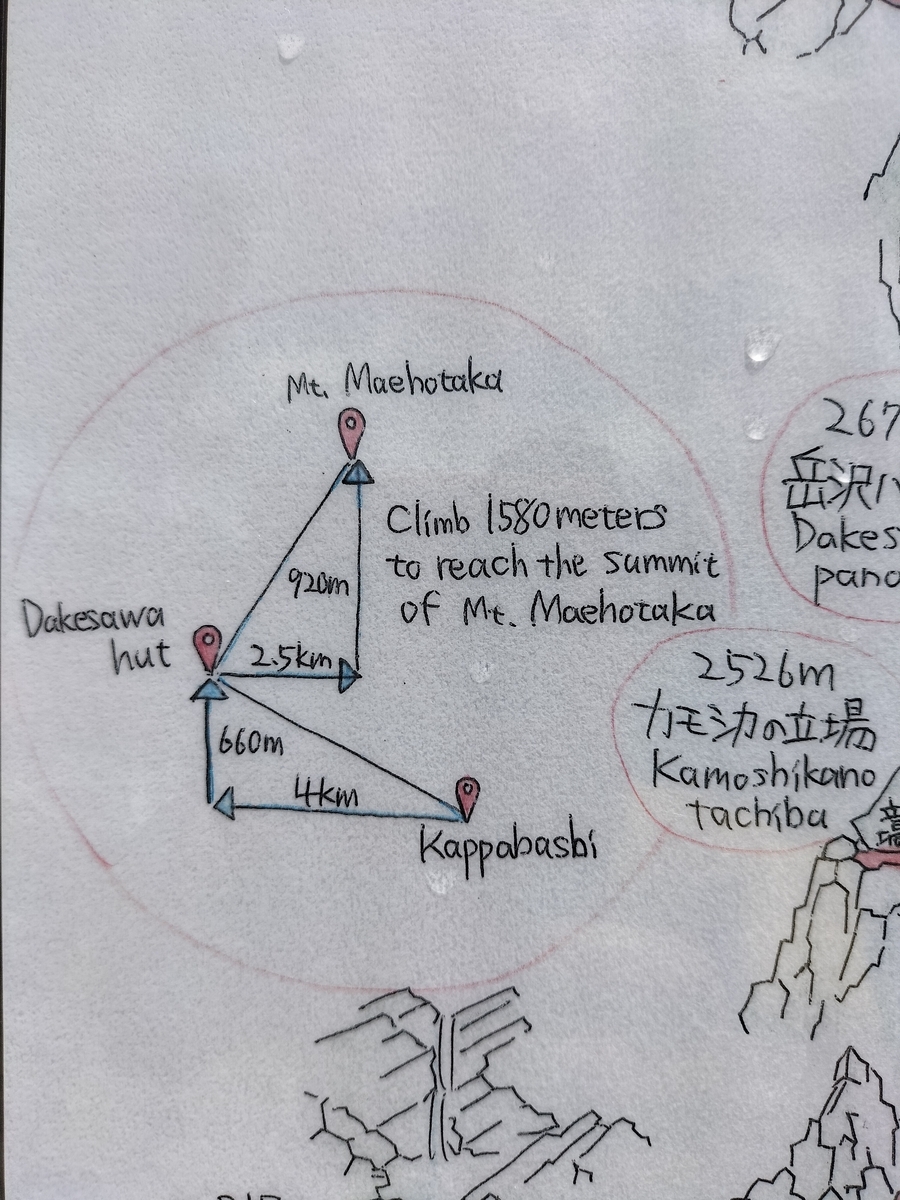 Mt. Maehotaka
Climb 1580meters
to reach the summit
of Mt. Maehotaka
920m
Dakesawa
hut
2.5km
660m
4km
Kappabashi
267
岳沢パ
Dakes
pano
2526m
カモシカの立場
Kamoshikano
tachiba